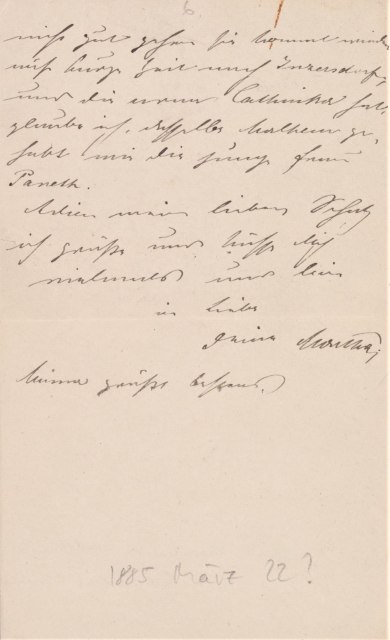 6
nicht gut gehen sie kommt wieder
auf kurze Zeit nach Inzersdorf,
und die arme Cathinka hat,
glaube ich, dasselbe Malheur ge-
habt wie die junge Frau
Paneth.
Adieu mein lieber Schatz
ich grüße und küsse Dich
vielmals und bin
in Liebe
Deine Martha,
Minna grüßt bestens.
1885 März 22?